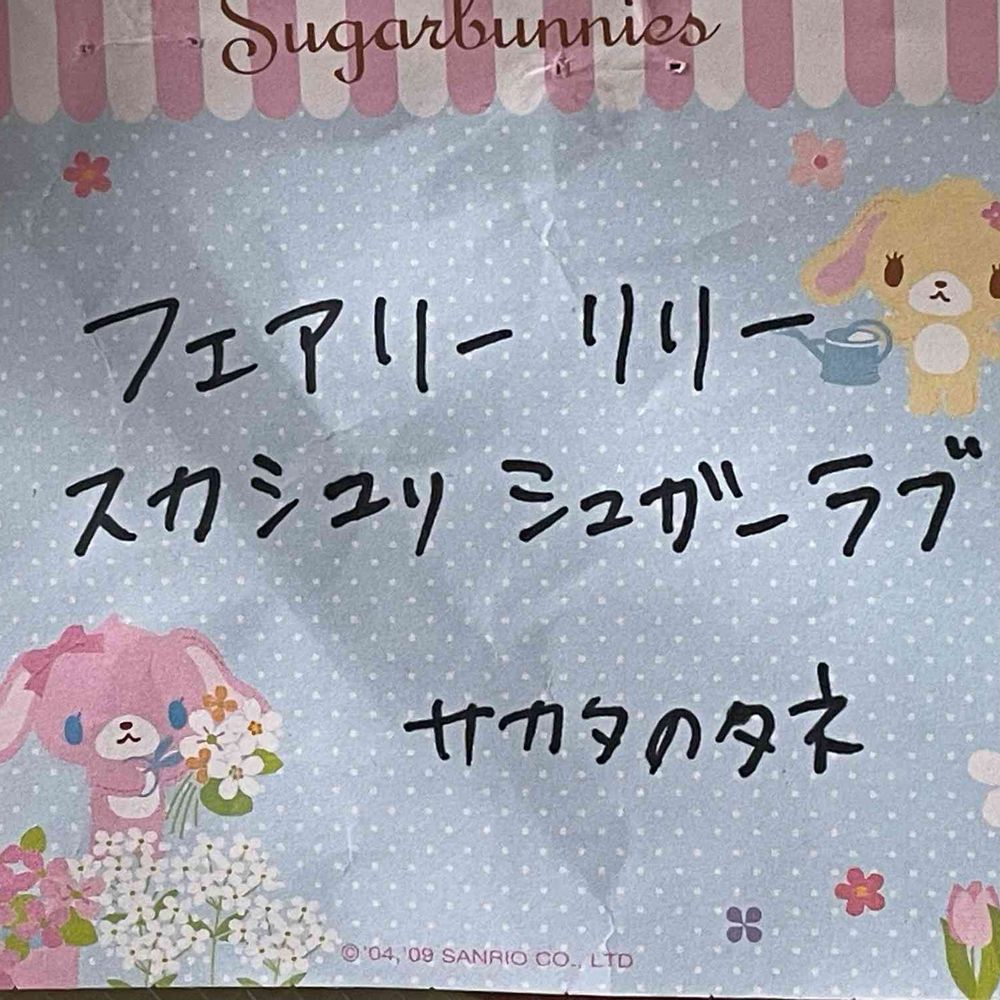 Sugarbunnies
フェアリー リリー
スカシユリ シュガーラブ
サカタのタネ
© '04, '09 SANRIO CO., LTD